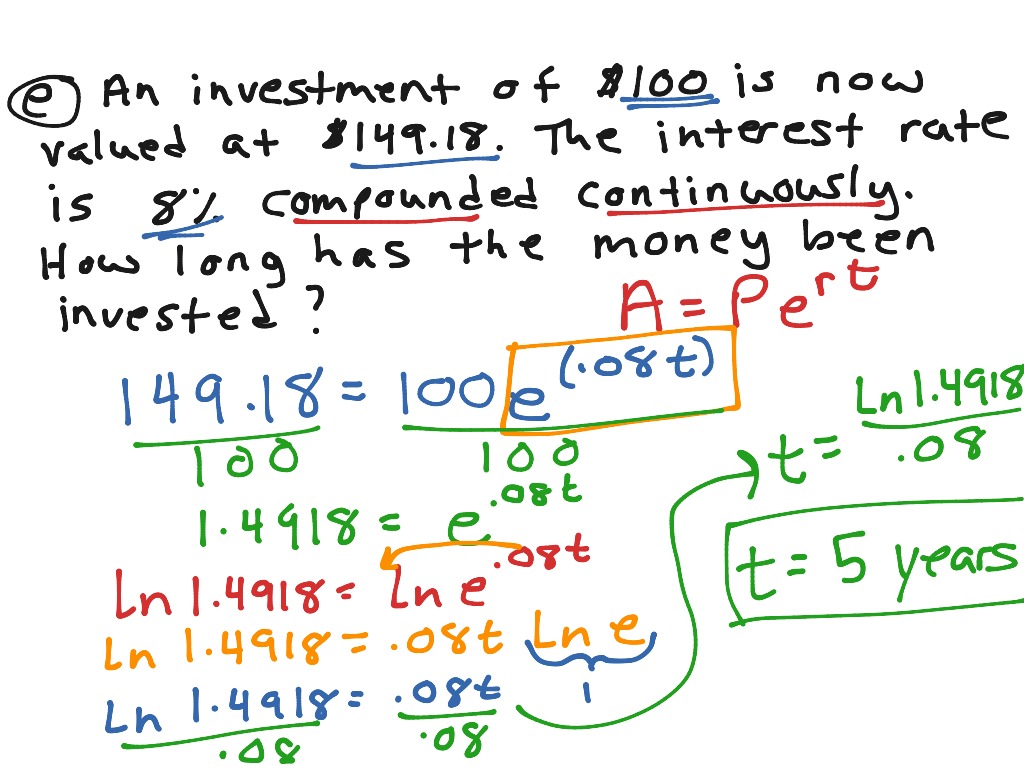 e An investment of $100 is now
valued at $149.18. The interest rate
is 8% compounded continuously.
How long has the money been
invested?
A = Pe^rt
149.18 = 100 e^(.08t)
100 100
1.4918 = e^.08t
Ln 1.4918 = Ln e^.08t
Ln 1.4918 = .08t Ln e
1
Ln 1.4918 = .08t
.08 .08
t = Ln 1.4918
.08
t = 5 years